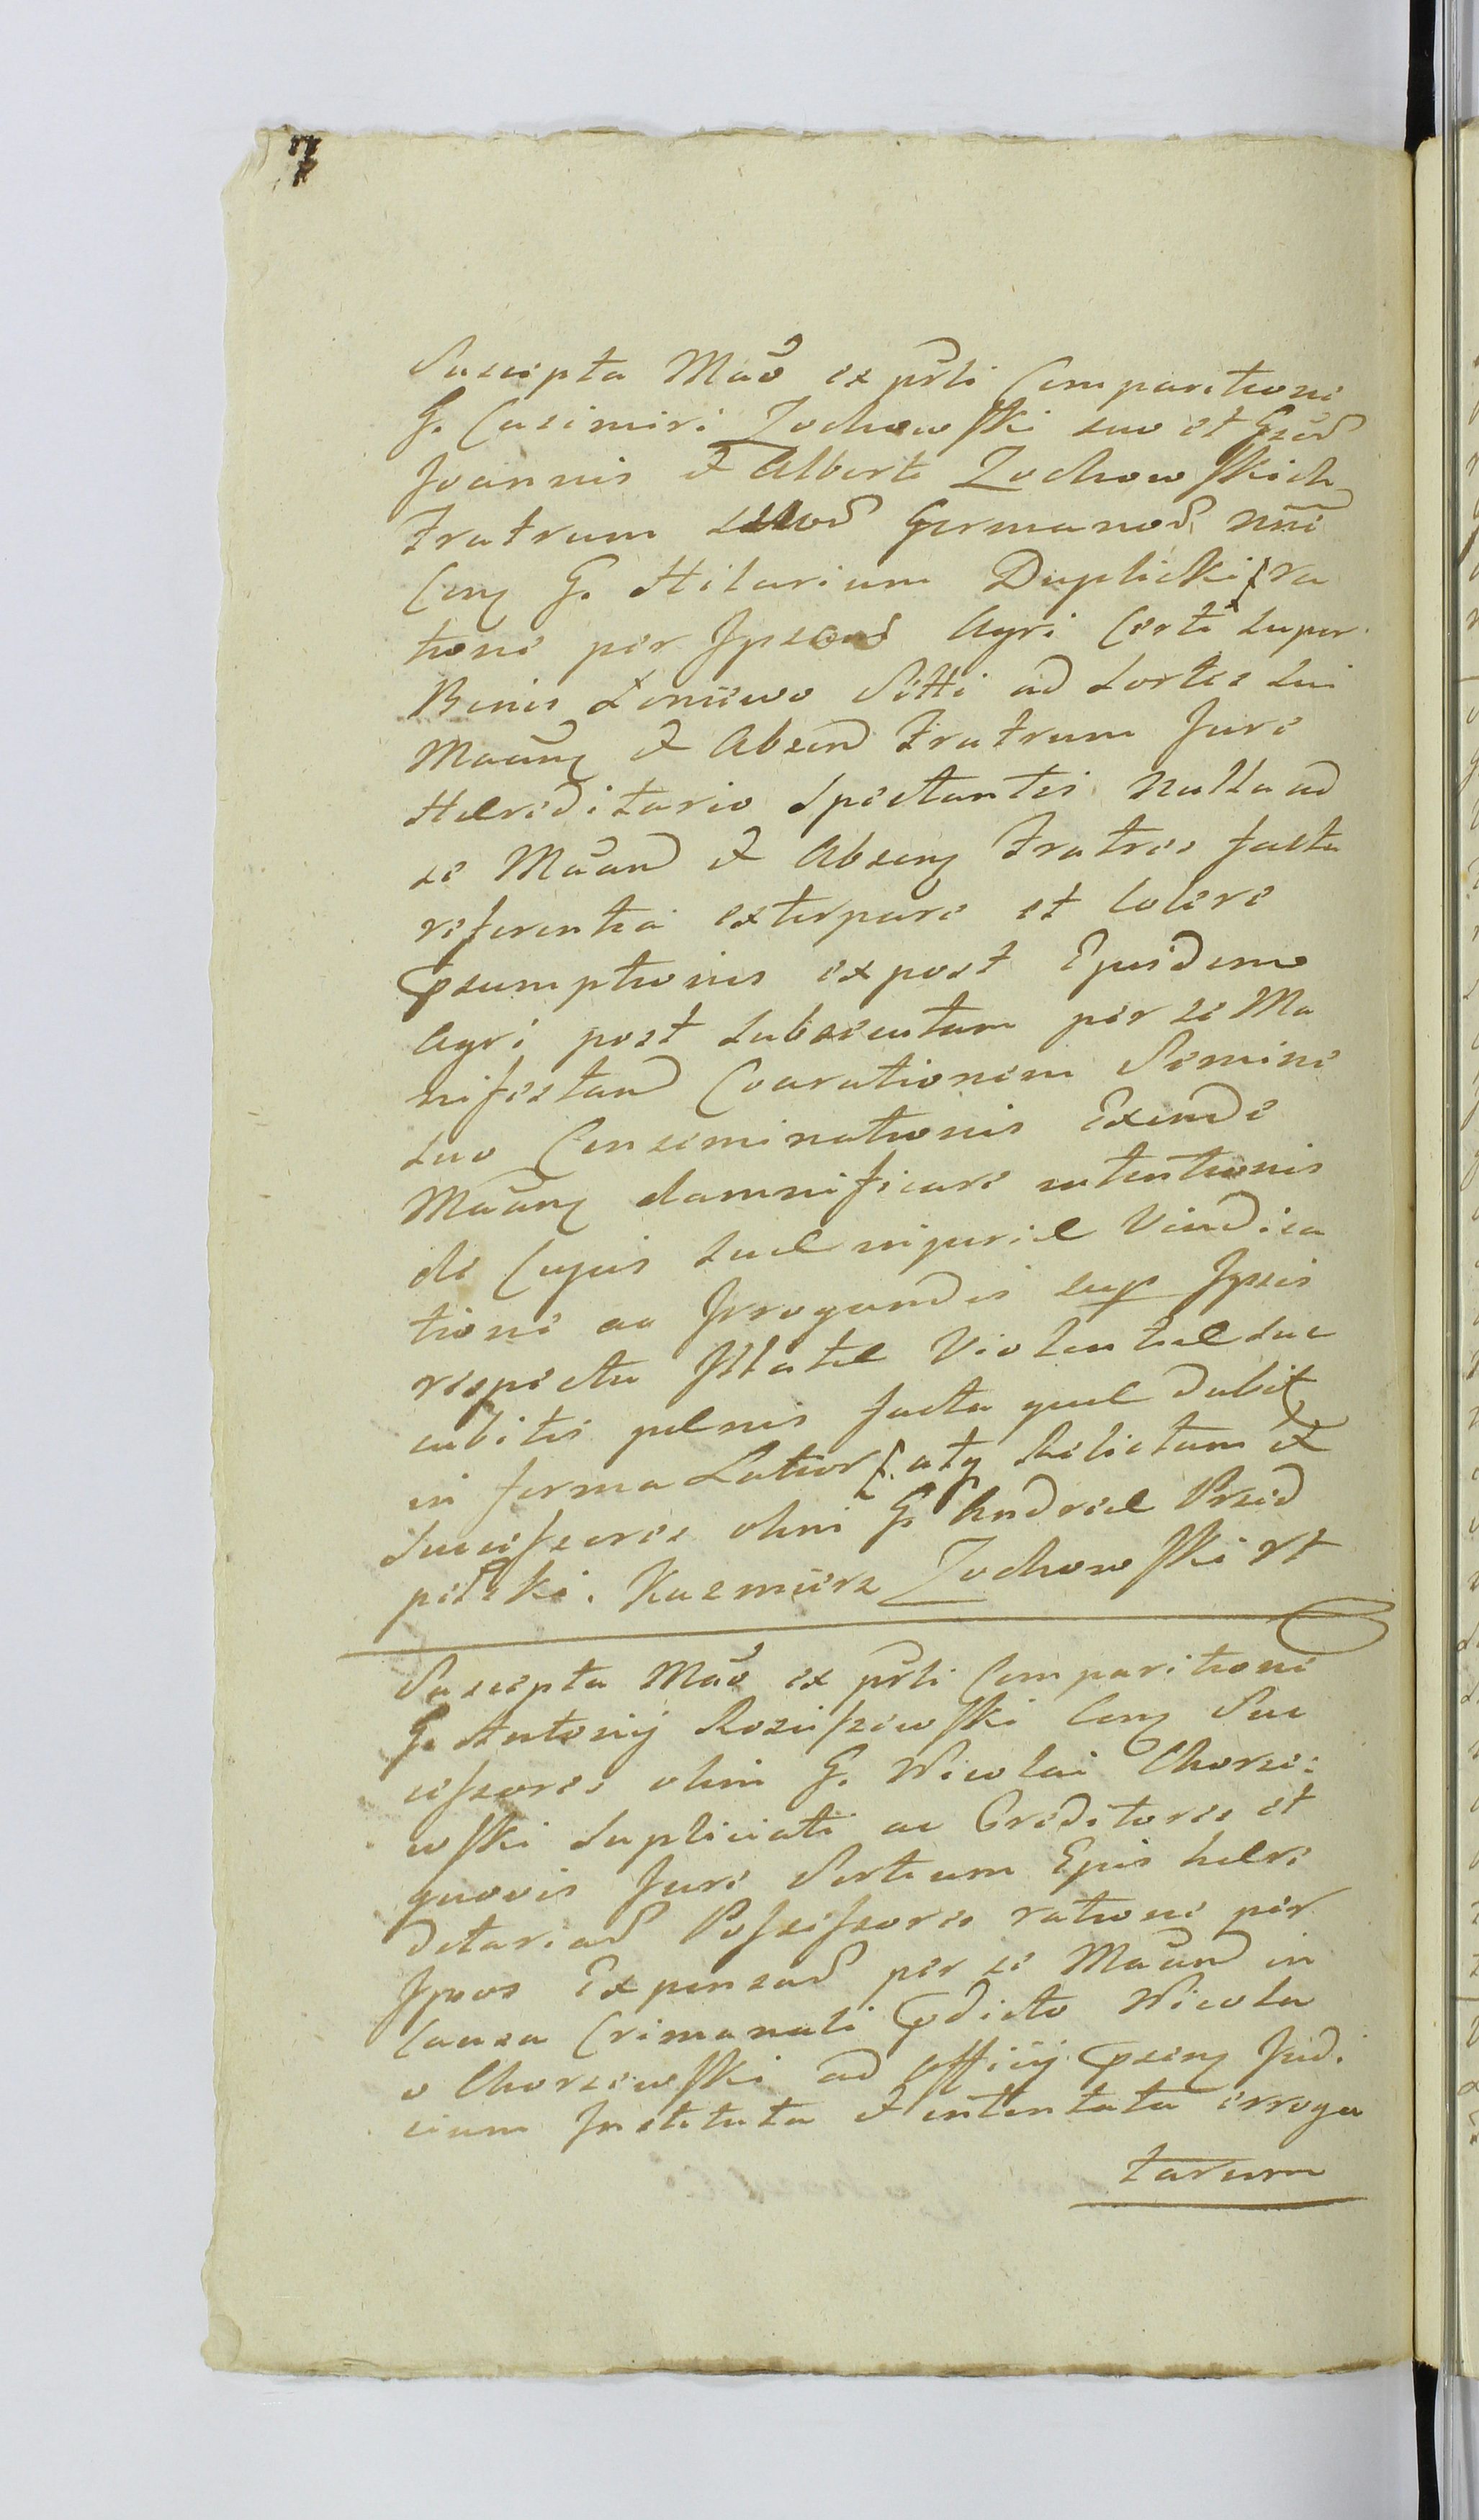 Suscepta Mãō ex pr̃ti Comparitione
G. Casimiri Zochowski suo et Gsoꝝ
Joannis & Alberti Zochowskich
Fratrum suoꝝ Germanoꝝ nn̄e
Cong G. Hilarium Duplicki ra
tione per Ipsoꝝ Agri Certi super
Bonis Loniewo Sitti ad Sortes Sui
Maang & Absen Fratrum Jure
Haereditario Spectantis nulla ad
se Mãan & Abseng Fratres facta
referentia extirpare et Colere
Pꝛsumptionis expost Ejusdemo
Agri post Subsecutam per se Ma
nifestan Coarationem Semine
suo Conseminationis Exinde
Mãang damnificare intentionis
de Cujus suae injuriae Vindica
tione ac Irrogandis sup Ipsis
respectu Illatae Violentiae suc
cubitis paenis facta quae dabit
in forma Latior. atq Relictam &
Successores olim G. Andreae Przed
pełski. Kazmierz Zochowski rt
Suscepta Mãō ex pr̃ti Comparitione
G. Antonij Rosciszewski Cong Suc
cessores olim G. Nicolai Chorze:
wski supliciati ac Creditores et
quovis Jure Sortium Ejus haere
ditariaꝝ Possessores ratione per
Ipsos Expensaꝝ per se Mãan in
Causa Criminali Pꝛdicto Nicola
o Chorzewski ad officij Pꝛseng Judi
cium Instituta & intentata erroga
tarum